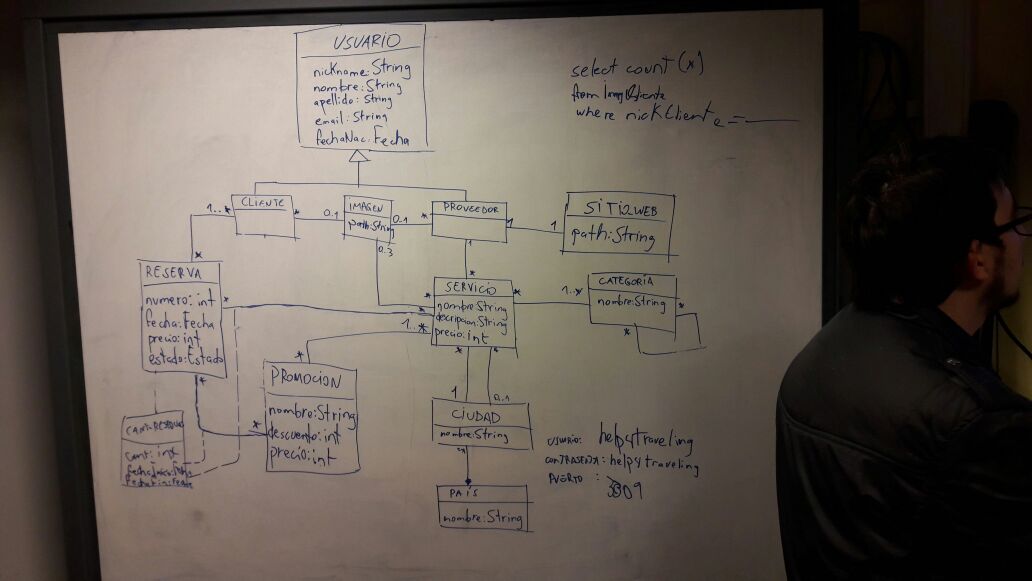 USUARIO
nickname: String
nombre: String
apellido: String
email: String
fechaNac: Fecha
select count (*)
from
where nickCliente =
CLIENTE
1..*
*
0.1
IMAGEN
path: String
0.1
*
PROVEEDOR
1
1
SITIO WEB
path: String
*
0..3
1
*
RESERVA
numero: int
fecha: Fecha
precio: int
estado: Estado
*
*
SERVICIO
nombre: String
decripcion: String
precio: int
*
*
*
1..*
1..*
CATEGORIA
nombre: String
*
*
*
PROMOCION
nombre: String
descuento: int
precio: int
*
*
*
*
1
0..1
CIUDAD
nombre: String
cant: int
USUARIO: help4traveling
CONTRASEÑA: help4traveling
PUERTO :
PAÍS
nombre: String